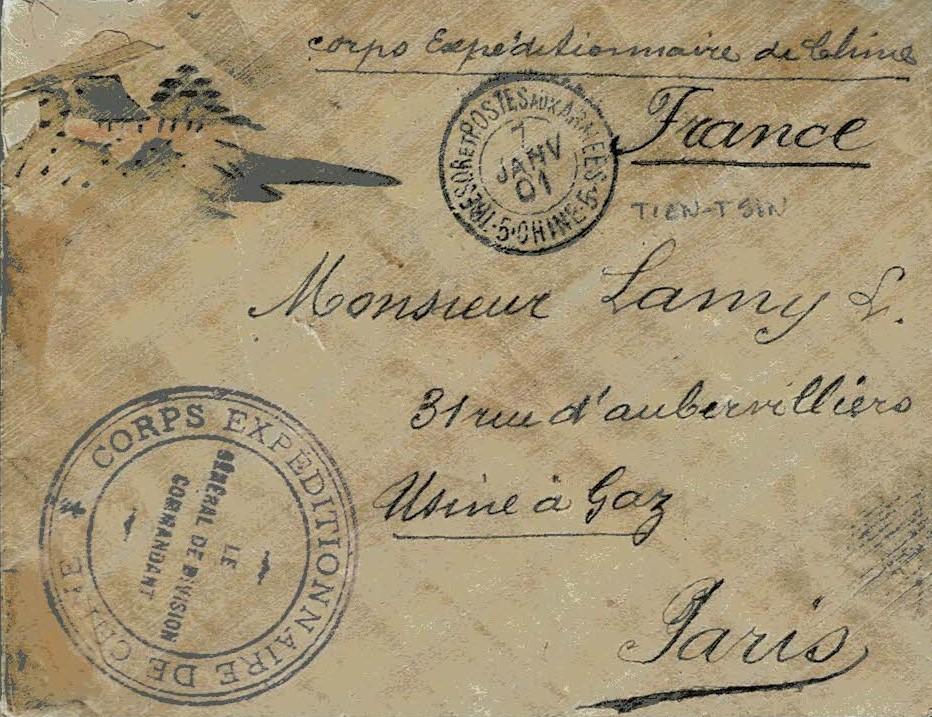 corps Expéditionnaire de Chine
France
TRESOR ET POSTES AUX ARMEES
7
JANV
01
·5·CHINE·5·
TIEN-TSIN
Monsieur Lamy L.
31 rue d'aubervilliers
Usine à Gaz
Paris
CORPS EXPÉDITIONNAIRE DE CHINE
LE
GÉNÉRAL DE DIVISION
COMMANDANT